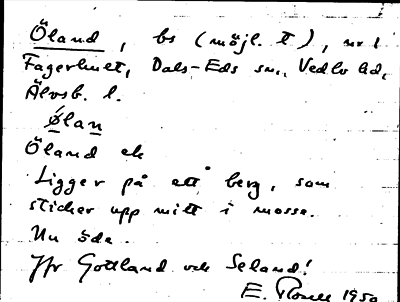 Öland, bs (möjl. t), nr 1
Fagerhult, Dals-Eds sn., Vedbo hd,
Älvsb. l.
Ølan
Öland ek
Ligger på ett berg, som
sticher upp mitt i mosse.
Nu öde.
Jfr Gottland och Seland!
E. 1950